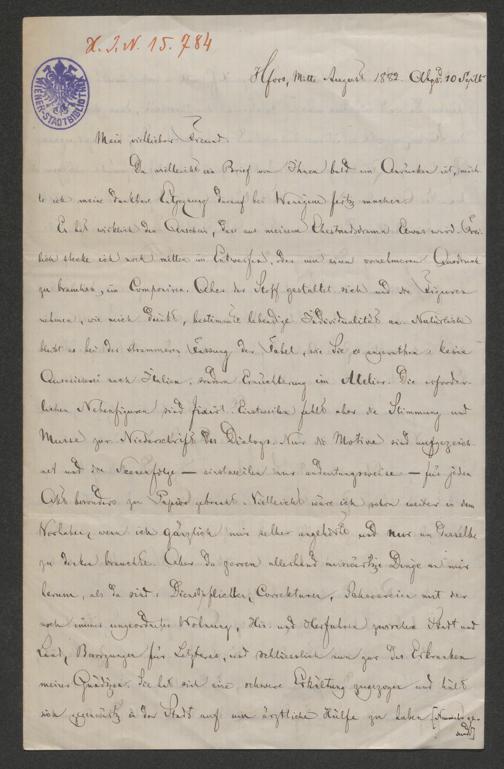 H. I. N. 15.784
WIENER-STADTBIBLIOTHEK
Hfors, Mitte August 1882. Abgs. 10 Sept.
Mein vielliebster Freund.
Da vielleicht ein Brief von Ihnen bald im Anrücken ist, möch-
te ich meine dankbare Entgegnung darauf bei Wenigem fertig machen.
Es hat wirklich den Anschein, das aus meinem Ehestandsdrama Etwas wird. Frei-
lich stecke ich noch mitten im Entwerfen, oder um einen vornehmeren Ausdruck
zu brauchen, im Componiren. Aber der Stoff gestaltet sich und die Figuren
nehmen, wie mich dünkt, bestimmte lebendige Individualität an. Natürlich
bleibt es bei der strammeren Fassung der Fabel, wie Sie es angerathen: keine
nach Italien, sondern im Atelier. Die erforder-
lichen Nebenfiguren sind fixirt. Einstweilen fehlt aber die Stimmung und
Musse zur Niederschrift des Dialogs. Nur die Motive sind aufgezeich-
net und die Scenenfolge — einstweilen nur andeutungsweise — für jeden
Akt besonders zu Papier gebracht. Vielleicht wäre ich schon weiter in dem
Vorhaben, wenn ich gänzlich mir selber angehörte und nur an dasselbe
zu denken brauchte. Aber da zerren allerhand auswärtige Dinge an mir
herum, als da sind: Dienstpflichten, Correkturen, mit der
noch immer ungeordneten Wohnung, Hin- und Herfahren zwischen Stadt und
Land, Besorgungen für Letzteres, und schliesslich nun gar das Erkranken
meiner Gnädigen. Sie hat sich eine schwere Erkältung zugezogen und hält
sich gegenwärtig in der Stadt auf um ärztliche Hülfe zu haben [Nunmehr ge-
sund]